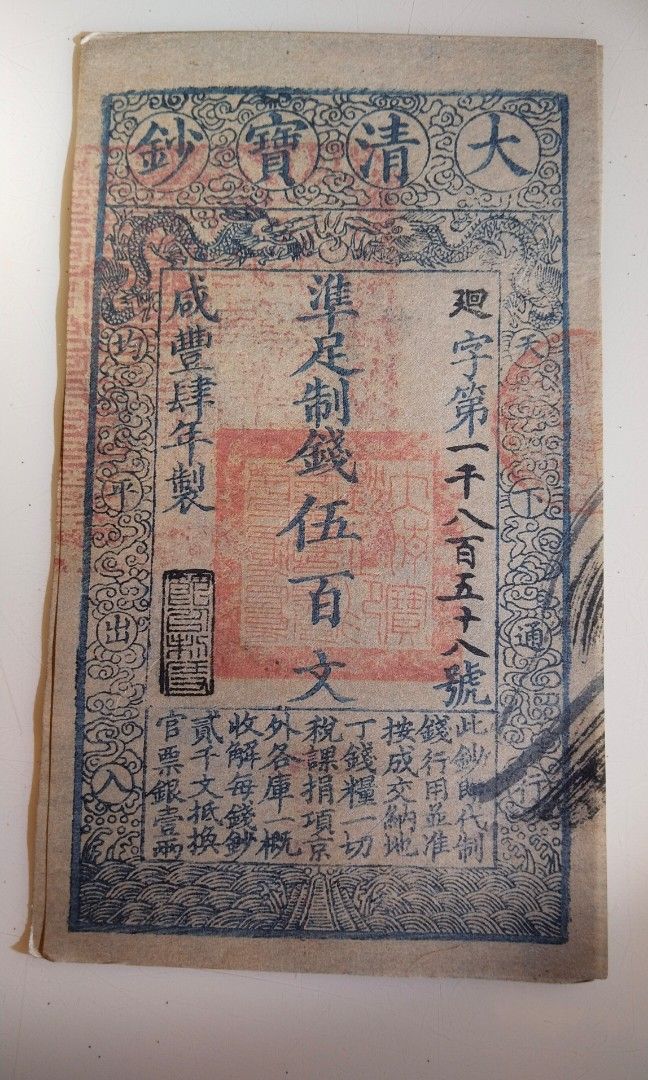 大清寶鈔
天下通行
均平出入
廻字第一千八百五十八號
準足制錢伍百文
咸豐肆年製
此鈔即代制
錢行用並准
按成交納地
丁錢糧一切
稅課捐項京
外各庫一概
收解每錢鈔
貳千文抵換
官票銀壹兩